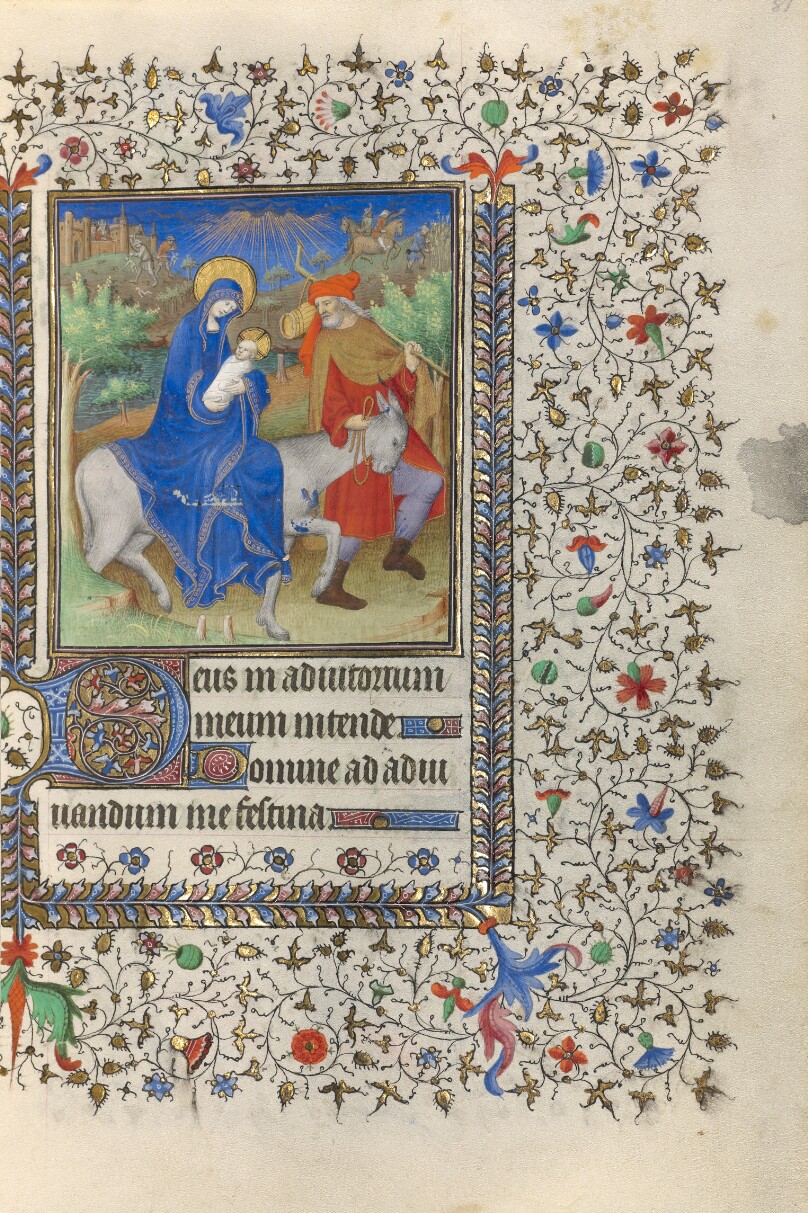 81
Deus in adiutorium
meum intende
Domine ad adiu
uandum me festina